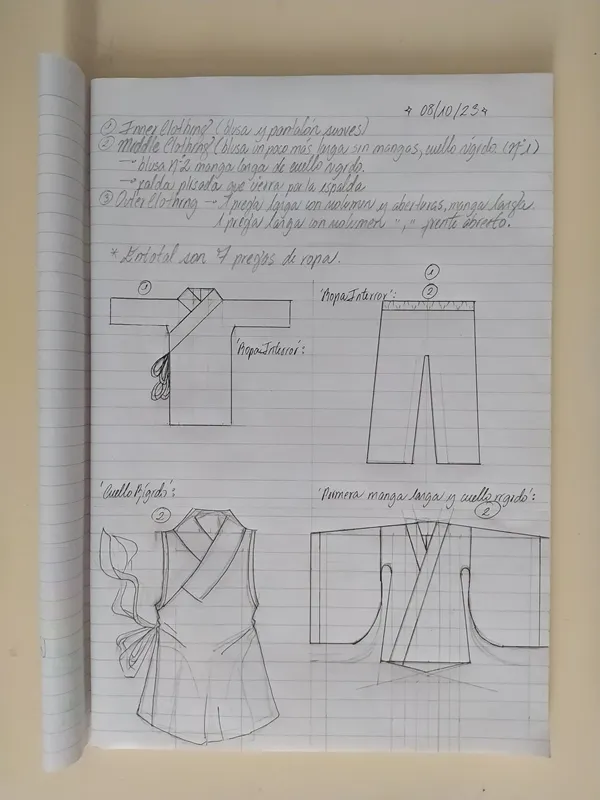 08/10/23
① Inner Clothing (blusa y pantalón suaves)
② Middle Clothing (blusa un poco más larga sin mangas, cuello rígido. (N°1)
→ blusa N°2 manga larga de cuello rígido.
→ falda plisada que cierra por la espalda
③ Outer Clothing → 1 prenda larga con volumen y aberturas, manga larga.
1 prenda larga con volumen " , " frente abierto.
* En total son 7 prendas de ropa.
①
①
②
'Ropa Interior':
'Ropa Interior':
'Cuello Rígido':
②
'Primera manga larga y cuello rígido':
②